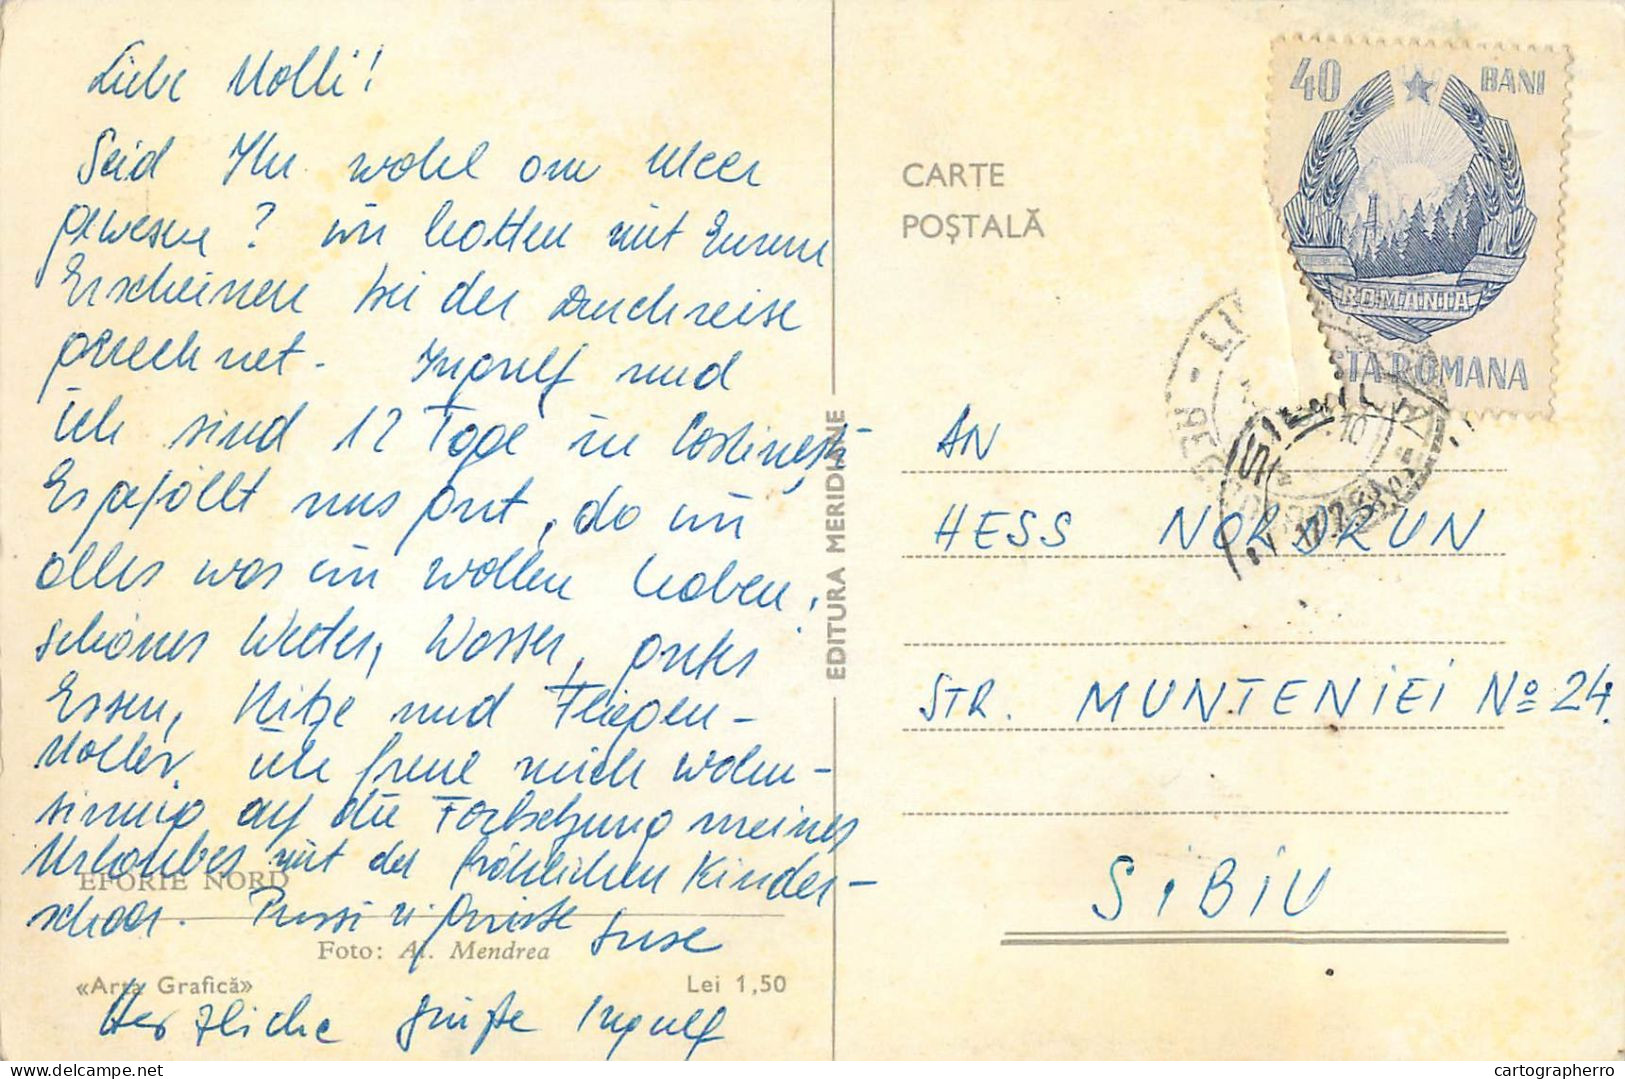 Liebe Molli!
Seid Ihr wohl am Meer
gewesen? Wir hatten mit Eurem
Erscheinen bei der Durchreise
gerechnet. Ingulf und
ich sind 12 Tage in Costinești
Es gefällt uns gut, da wir
alles was wir wollen haben:
schönes Wetter, Wasser, gutes
Essen, Hitze und Fliegen-
Ich freue mich wahn-
sinnig auf die Fortsetzung meines
Urlaubes mit der fröhlichen Kinder-
schaar. Bussi u. Grüsse Suse
Herzliche Grüße Ingulf
EFORIE NORD
Foto: Al. Mendrea
«Arta Grafică» Lei 1,50
EDITURA MERIDIANE
CARTE
POȘTALĂ
40 BANI
ROMANIA
STA ROMANA
SIBIU
AN
HESS NORDRUN
STR. MUNTENIEI No 24.
SIBIU
cartographerro